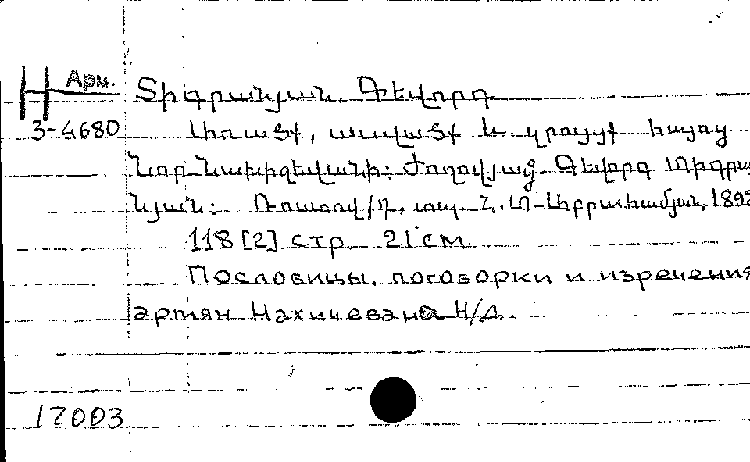 Н Арм.
Տիգրանյան Գևորգ
3-4680
Առածք, ասվածք և զրույցք հայոց
Նոր-Նախիջևանի: Ժողովյաց Գևորգ Տիգրա
նյան: Ռոստով /Դ, տպ. Ն. Տ-Աբրահամյան, 189
118 [2] стр 21 см
Пословицы, поговорки и изречения
армян Нахичевана Н/Д.
17003